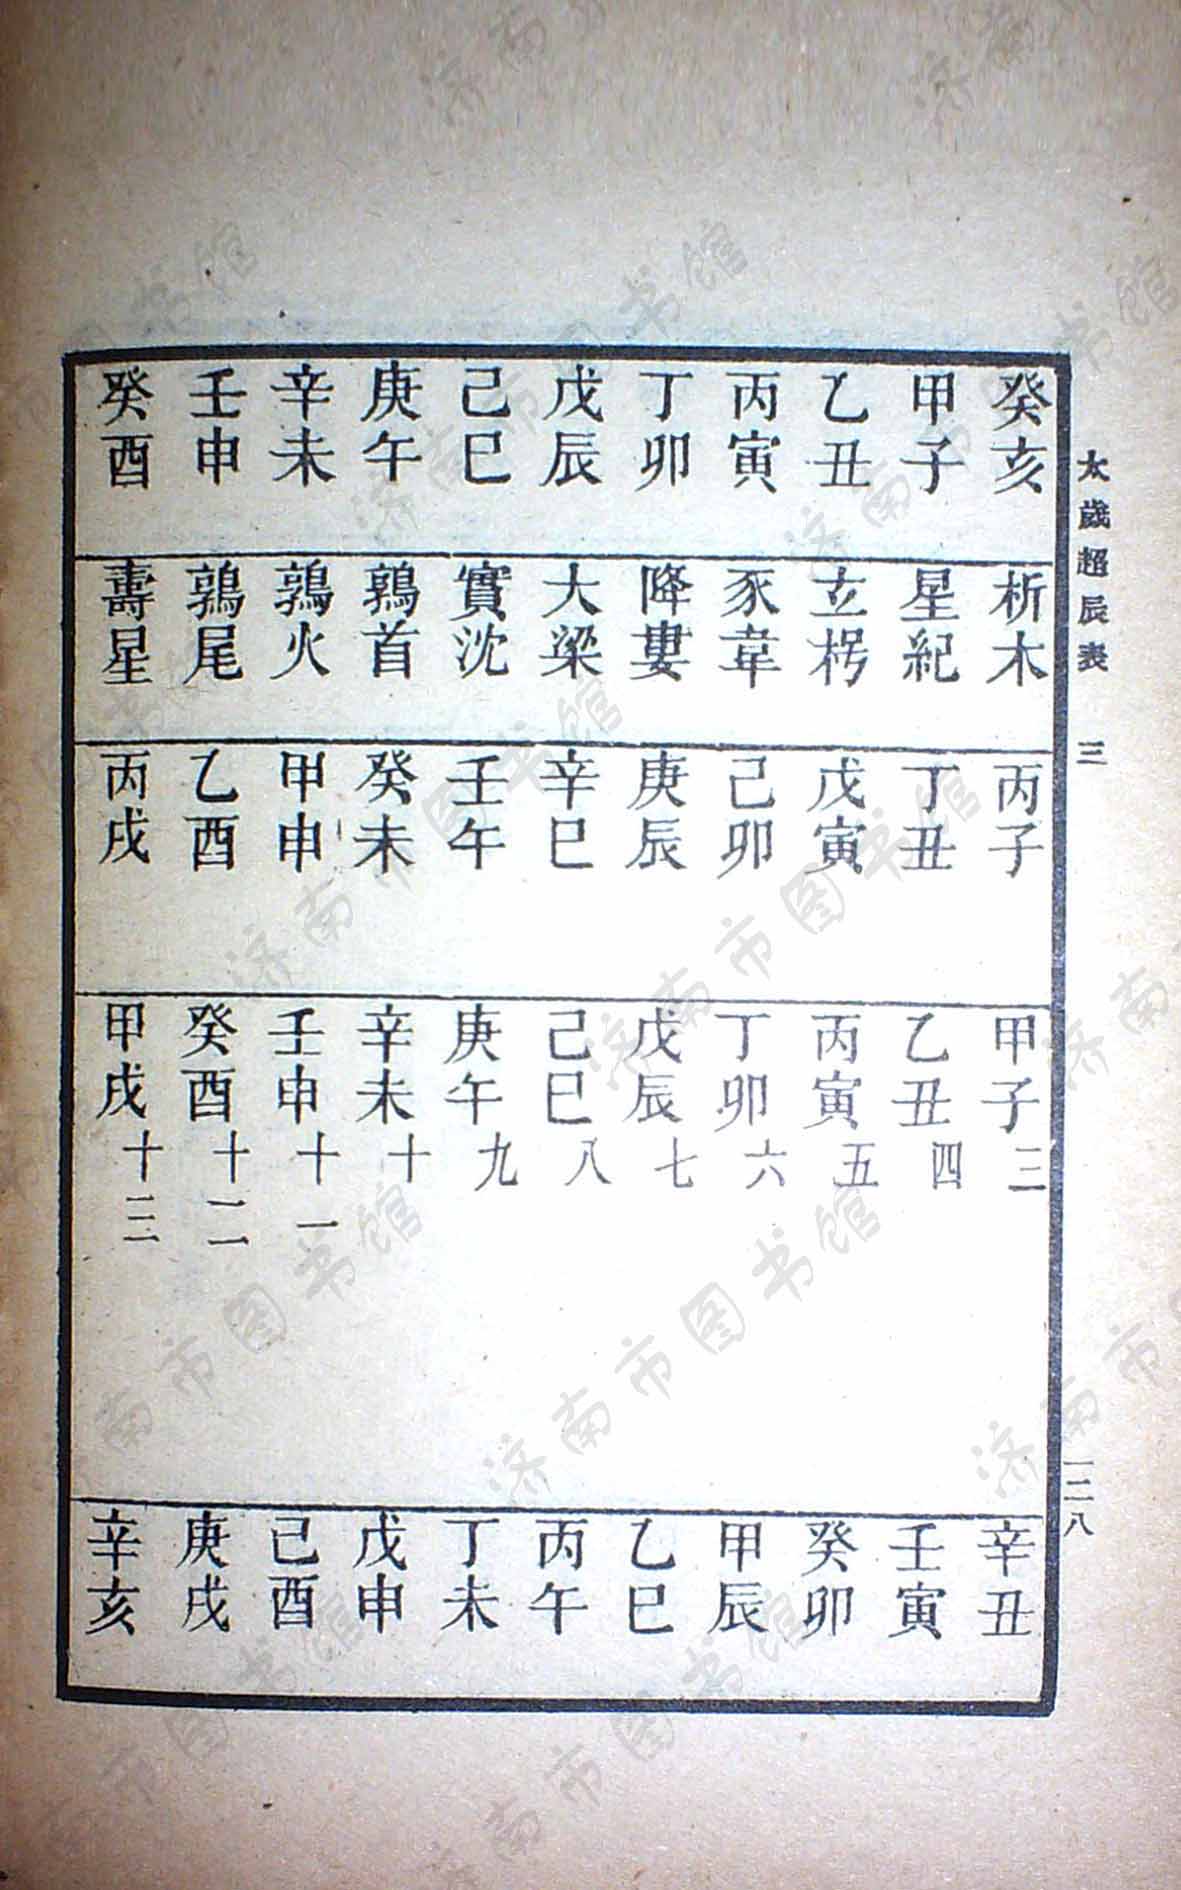 太歲超辰表 三 一二八
癸亥 析木 丙子 甲子三 辛丑
甲子 星紀 丁丑 乙丑四 壬寅
乙丑 玄枵 戊寅 丙寅五 癸卯
丙寅 豕韋 己卯 丁卯六 甲辰
丁卯 降婁 庚辰 戊辰七 乙巳
戊辰 大梁 辛巳 己巳八 丙午
己巳 實沈 壬午 庚午九 丁未
庚午 鶉首 癸未 辛未十 戊申
辛未 鶉火 甲申 壬申十一 己酉
壬申 鶉尾 乙酉 癸酉十二 庚戌
癸酉 壽星 丙戌 甲戌十三 辛亥
济南市图书馆